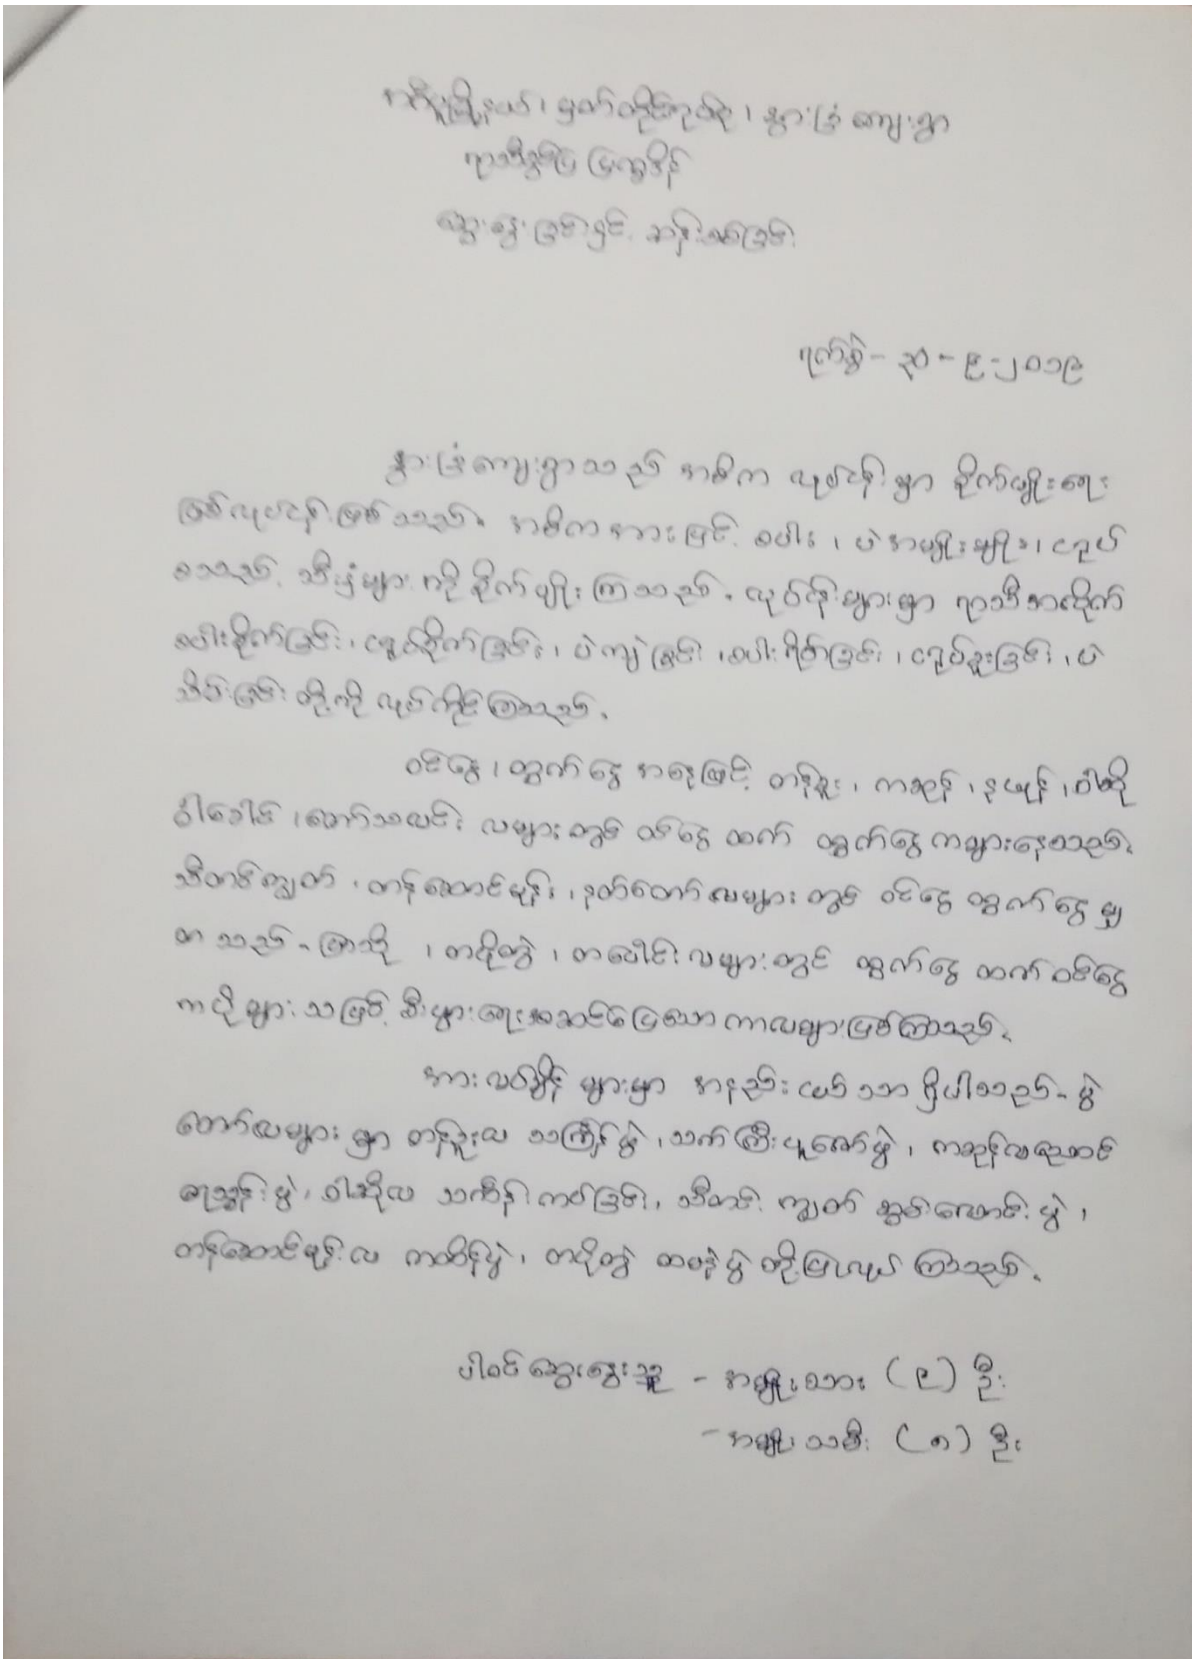 မြို့နယ်၊ မှတ်တိုင်အုပ်စု၊ နွားခြံကျေးရွာ
ရာသီခွင်ပြ ပြက္ခဒိန်
ဆွေးနွေးခြင်းနှင့် ဆန်းစစ်ခြင်း
ရက်စွဲ - ၃၀ - ၉ - ၂၀၁၉
နွားခြံကျေးရွာသည် အဓိက လုပ်ငန်းမှာ စိုက်ပျိုးရေး
ဖြစ်သည်။ အဓိကအားဖြင့် စပါး၊ ပဲအမျိုးမျိုး၊ ငရုပ်
စသည့် သီးနှံများကို စိုက်ပျိုးကြသည်။ လုပ်ငန်းများမှာ ရာသီအလိုက်
စပါးစိုက်ခြင်း၊ ငရုပ်စိုက်ခြင်း၊ ပဲကျဲခြင်း၊ စပါးရိတ်ခြင်း၊ ငရုပ်ခူးခြင်း၊ ပဲ
သိမ်းခြင်းတို့ကို လုပ်ကိုင်ကြသည်။
ဝင်ငွေ၊ ထွက်ငွေ အနေဖြင့် တန်ခူး၊ ကဆုန်၊ နယုန်၊ ဝါဆို
ဝါခေါင်၊ တော်သလင်း လများတွင် ဝင်ငွေထက် ထွက်ငွေကများနေသည်။
သီတင်းကျွတ်၊ တန်ဆောင်မုန်း၊ နတ်တော်လများတွင် ဝင်ငွေ ထွက်ငွေ မျှ
တသည်။ ပြာသို၊ တပို့တွဲ၊ တပေါင်းလများတွင် ထွက်ငွေထက် ဝင်ငွေ
ကပိုများသဖြင့် စီးပွားရေးအဆင်ပြေသော ကာလများဖြစ်ကြသည်။
အားလပ်ချိန်များမှာ အနည်းငယ်သာ ရှိပါသည်။ ပွဲ
တော်လများမှာ တန်ခူးလ သင်္ကြန်ပွဲ၊ သက်ကြီးပူဇော်ပွဲ၊ ကဆုန်လညောင်
ရေသွန်းပွဲ၊ ဝါဆိုလ သင်္ကန်းကပ်ခြင်း၊ သီတင်းကျွတ် ဆွမ်းလောင်းပွဲ၊
တန်ဆောင်မုန်းလ ကထိန်ပွဲ၊ တပို့တွဲ ထမနဲပွဲတို့ပြုလုပ်ကြသည်။
ပါဝင်ဆွေးနွေးသူ - အမျိုးသား (၉) ဦး
- အမျိုးသမီး (၈) ဦး